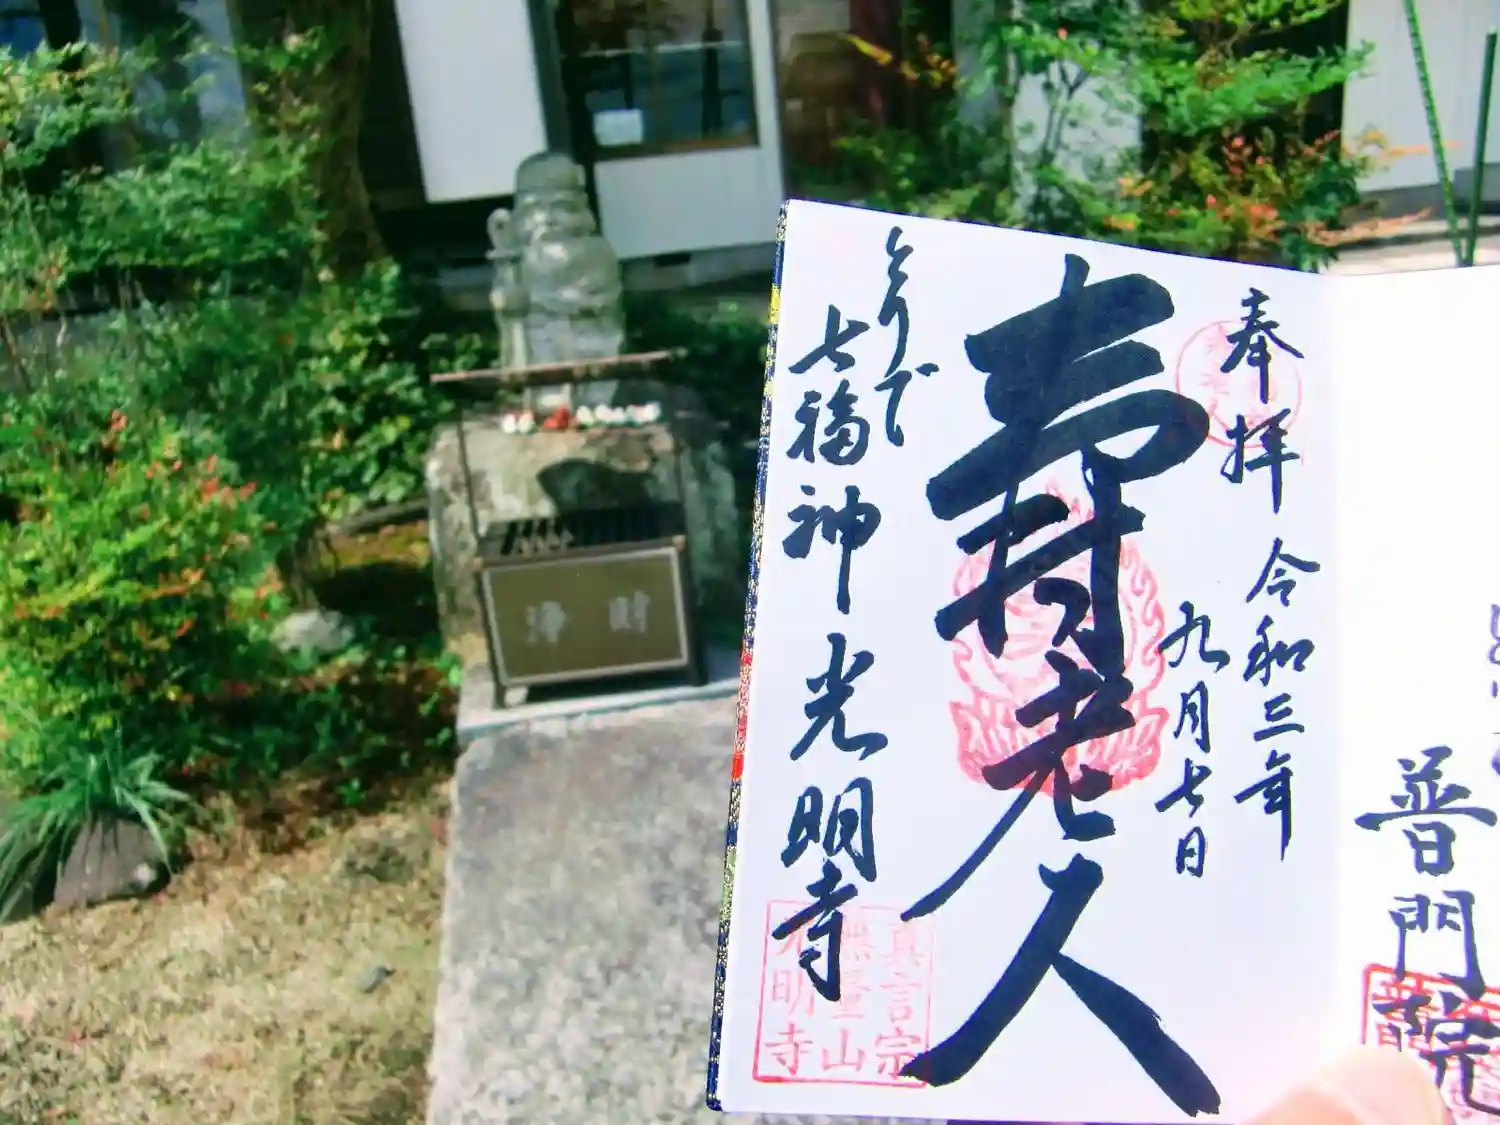 奉拝
令和三年
九月七日
寿老人
とりで
七福神
光明寺
真言宗
無量山
光明寺
普門院
浄財